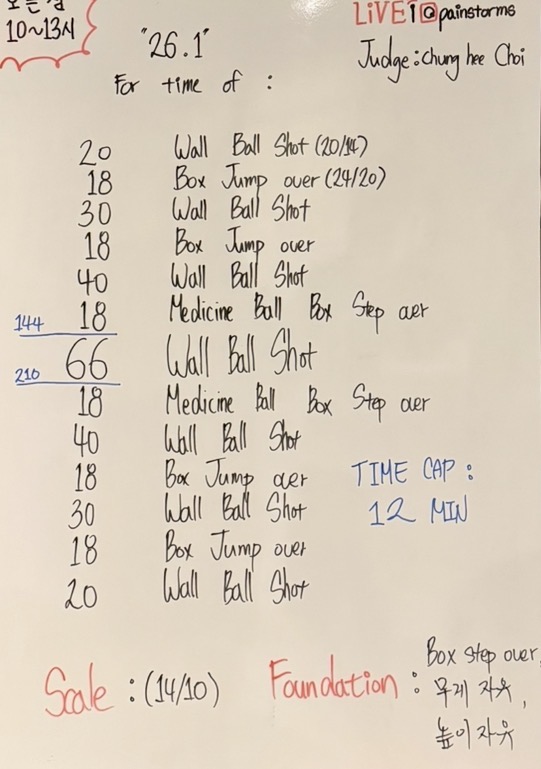 10~13시
LiVE @painstorms
Judge: Chung hee Choi
"26.1"
For time of :
20 Wall Ball Shot (20/14)
18 Box Jump over (24/20)
30 Wall Ball Shot
18 Box Jump over
40 Wall Ball Shot
144 18 Medicine Ball Box Step over
66 Wall Ball Shot
210
18 Medicine Ball Box Step over
40 Wall Ball Shot
18 Box Jump over
30 Wall Ball Shot
18 Box Jump over
20 Wall Ball Shot
TIME CAP :
12 MIN
Scale : (14/10)
Foundation : Box step over,
무게 자유,
높이 자유